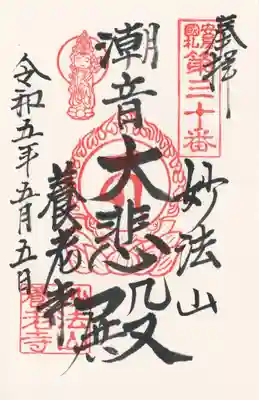 奉拝
安房
國札
第三十番
妙法山
潮音大悲殿
養老寺
令和五年五月五日
妙法山
養老寺